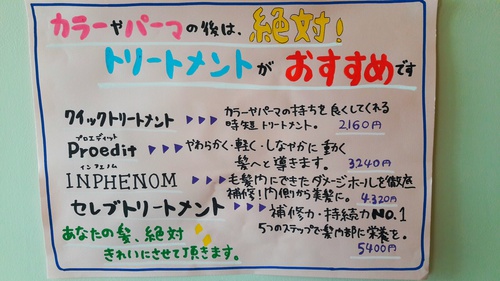 カラーやパーマの後は、絶対!
トリートメントがおすすめです
クイックトリートメント ▶▶▶ カラーやパーマの持ちを良くしてくれる
時短トリートメント。 2,160円
プロエディット
Proedit ▶▶▶ やわらかく・軽く・しなやかに動く
髪へと導きます。 3,240円
インフェノム
INPHENOM ▶▶▶ 毛髪内にできたダメージホールを徹底
補修!内側から美髪に。 4,320円
セレブトリートメント ▶▶▶ 補修力・持続力NO.1
5つのステップで髪内部に栄養を。
5400円
あなたの髪、絶対
きれいにさせて頂きます。